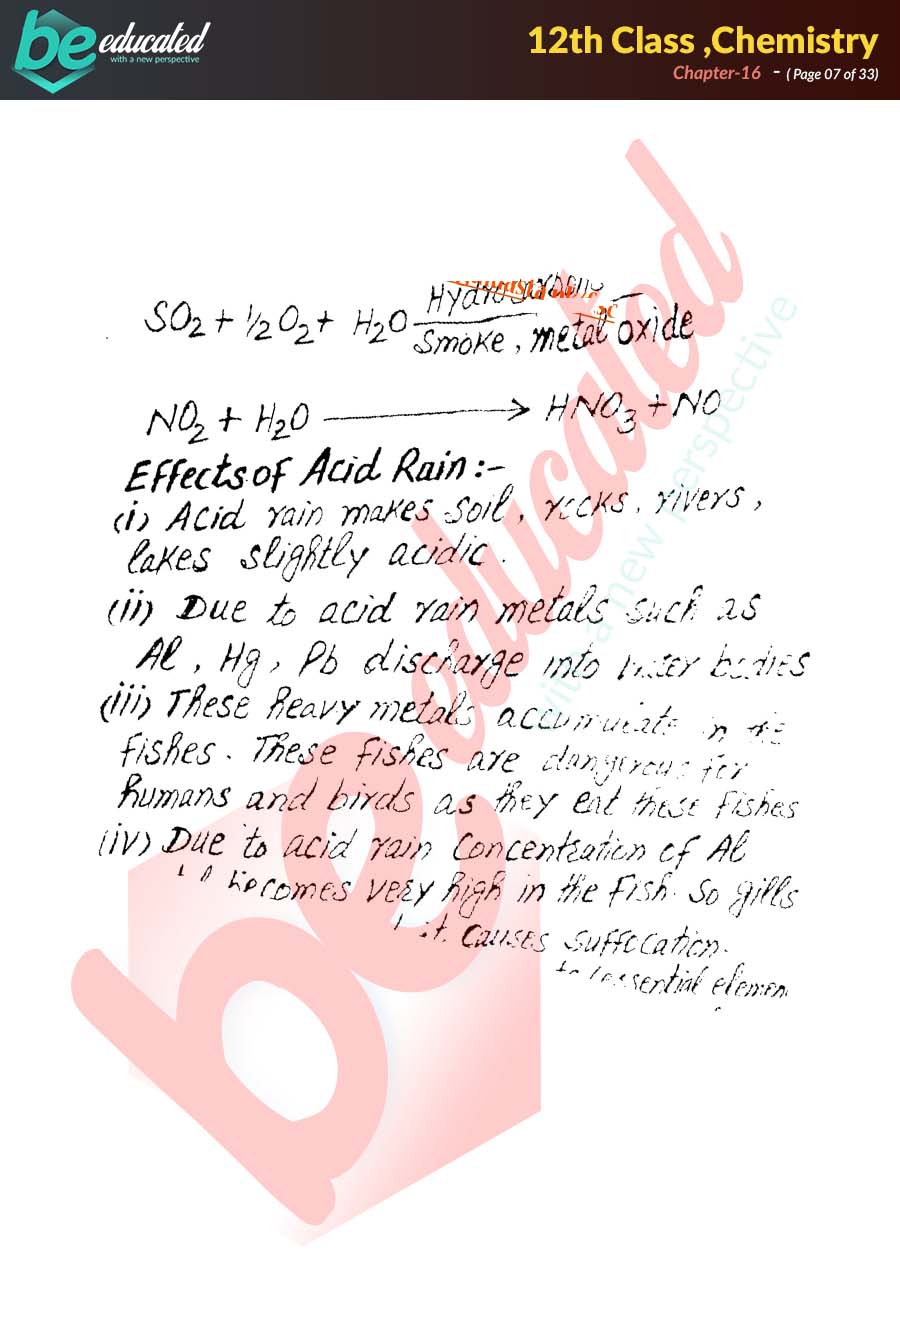 be educated
with a new perspective
12th Class ,Chemistry
Chapter-16 - ( Page 07 of 33)
SO2 + 1/2 O2 + H2O
Smoke, metal oxide
NO2 + H2O ⟶ HNO3 + NO
Effects of Acid Rain :-
(i) Acid rain makes soil, rocks, rivers,
lakes slightly acidic.
(ii) Due to acid rain metals such as
Al, Hg, Pb discharge into water bodies
(iii) These heavy metals accumulate in the
fishes. These fishes are dangerous for
humans and birds as they eat these fishes
(iv) Due to acid rain concentration of Al
becomes very high in the fish. So gills
it causes suffocation.
essential
be educated
with a new perspective